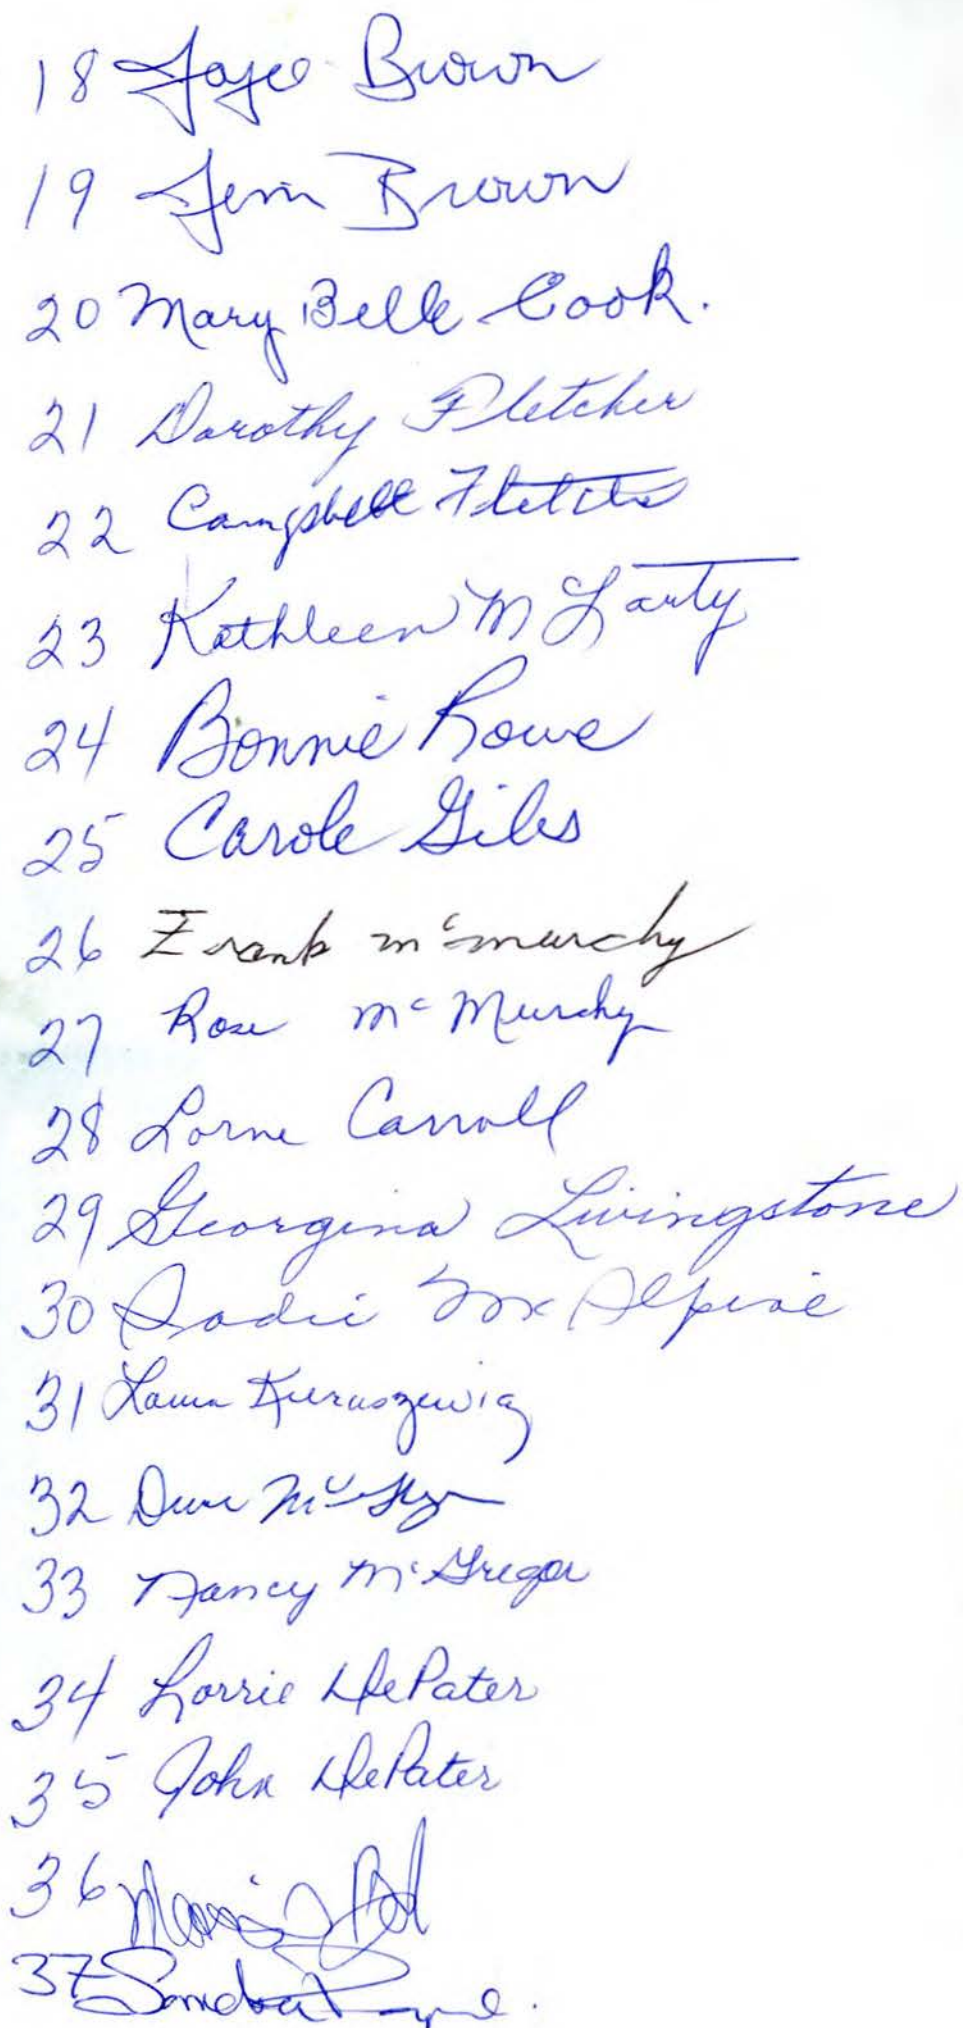 18 Joyce Brown
19 Jim Brown
20 Mary Belle Cook.
21 Dorothy Fletcher
22 Campbell Fletcher
23 Kathleen McLarty
24 Bonnie Rowe
25 Carole Giles
26 Frank McMurchy
27 Rose McMurchy
28 Lorne Carroll
29 Georgina Livingstone
30 Sadie McAlpine
31 Laura
32
33 Nancy McGregor
34 Lorrie DePater
35 John DePater
36
37 Sandra